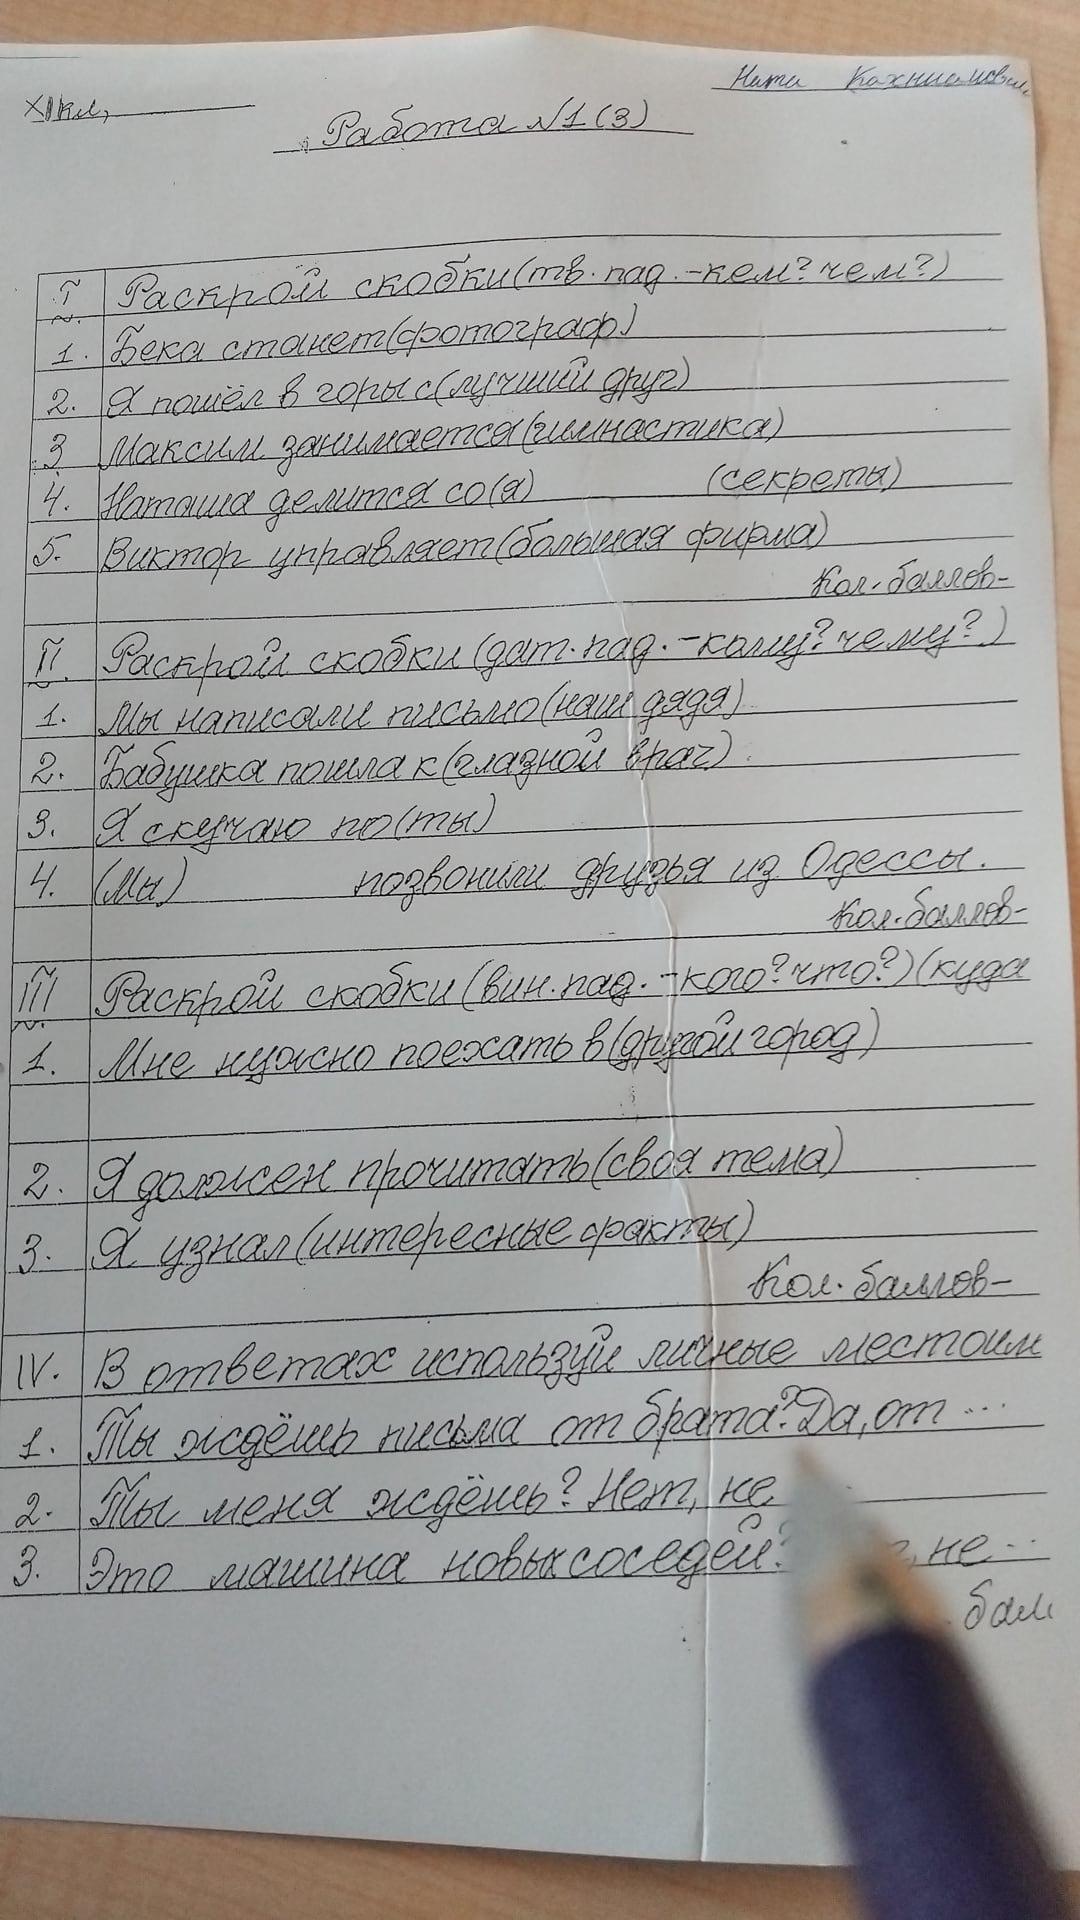 Ната
XI кл,
Работа №1(3)
I. Раскрой скобки(тв. пад. -кем? чем?)
1. Бека станет(фотограф)
2. Я пошёл в горы с(лучший друг)
3 Максим занимается(гимнастика)
4. Наташа делится со(я) (секреты)
5. Виктор управляет(большая фирма)
Кол. баллов-
II. Раскрой скобки (дат. пад. -кому? чему?)
1. Мы написали письмо(наш дядя)
2. Бабушка пошла к(глазной врач)
3. Я скучаю по(ты)
4. (Мы) позвонили друзья из Одессы.
Кол. баллов-
III. Раскрой скобки (вин. пад. -кого? что?)(куда
1. Мне нужно поехать в(другой город)
2. Я должен прочитать(своя тема)
3. Я узнал(интересные факты)
Кол. баллов-
IV. В ответах используй личные местоим
1. Ты ждёшь письма от брата? Да, от ...
2. Ты меня ждёшь? Нет, не
3. Это машина новых соседей? , не ...